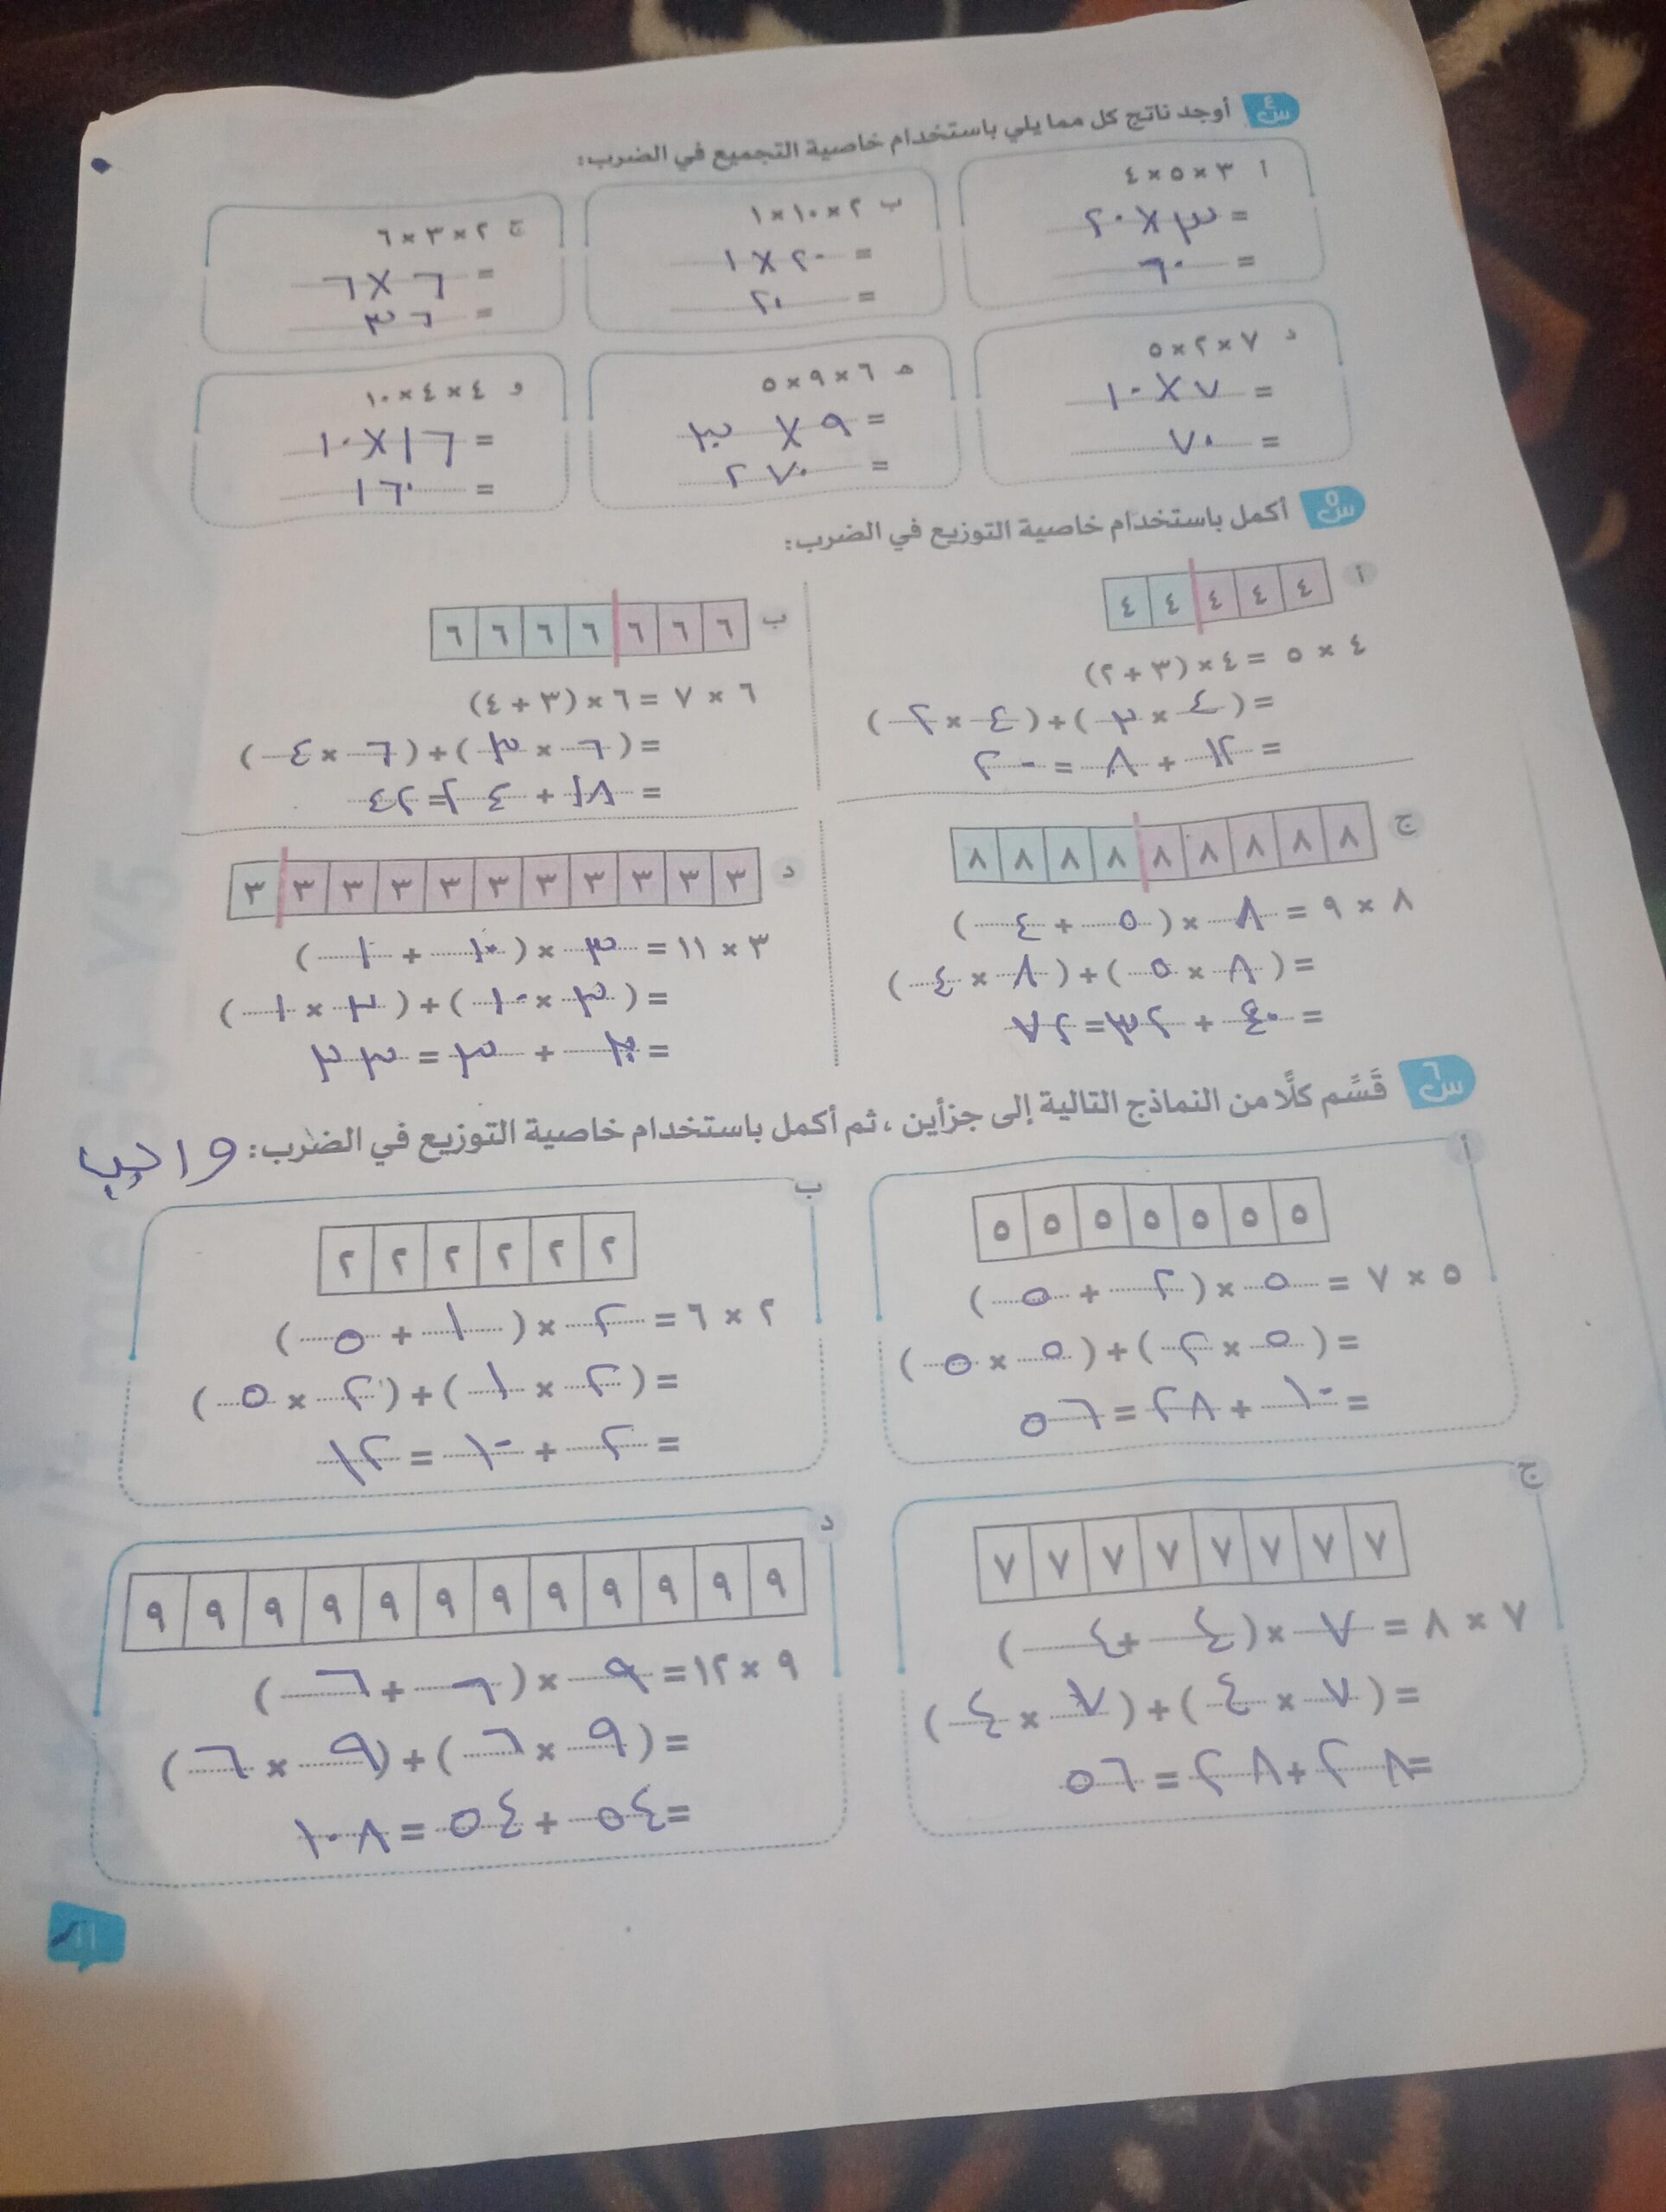 س٤ أوجد ناتج كل مما يلي باستخدام خاصية التجميع في الضرب:
أ ٣ × ٥ × ٤
= ٣ × ٢٠
= ٦٠
ب ٢ × ١٠ × ١
= ٢٠ × ١
= ٢٠
ج ٢ × ٣ × ٦
= ٦ × ٦
= ٣٦
د ٧ × ٢ × ٥
= ٧ × ١٠
= ٧٠
هـ ٦ × ٩ × ٥
= ٩ × ٣٠
= ٢٧٠
و ٤ × ٤ × ١٠
= ١٦ × ١٠
= ١٦٠
س٥ أكمل باستخدام خاصية التوزيع في الضرب:
أ
٤ ٤ ٤ ٤ ٤
٤ × ٥ = ٤ × (٣ + ٢)
= (٤ × ٣) + (٤ × ٢)
= ١٢ + ٨ = ٢٠
ب
٦ ٦ ٦ ٦ ٦ ٦ ٦
٦ × ٧ = ٦ × (٣ + ٤)
= (٦ × ٣) + (٦ × ٤)
= ١٨ + ٢٤ =
ج
٨ ٨ ٨ ٨ ٨ ٨ ٨ ٨ ٨
٨ × ٩ = ٨ × (٥ + ٤)
= (٨ × ٥) + (٨ × ٤)
= ٤٠ + ٢٣ =
د
٣ ٣ ٣ ٣ ٣ ٣ ٣ ٣ ٣ ٣ ٣
٣ × ١١ = ٣ × (١٠ + ١)
= (٣ × ١٠) + (٣ × ١)
= ٣٠ + ٣ = ٣٣
س٦ قَسِّم كلًا من النماذج التالية إلى جزأين ، ثم أكمل باستخدام خاصية التوزيع في الضرب: واجب
أ
٥ ٥ ٥ ٥ ٥ ٥ ٥
٥ × ٧ = ٥ × (٢ + ٥)
= (٥ × ٢) + (٥ × ٥)
= ١٠ + ٢٨ = ٥٦
ب
٢ ٢ ٢ ٢ ٢ ٢
٢ × ٦ = ٢ × (١ + ٥)
= (٢ × ١) + (٢ × ٥)
= ٢ + ١٠ = ١٢
ج
٧ ٧ ٧ ٧ ٧ ٧ ٧ ٧
٧ × ٨ = ٧ × (٤ + ٤)
= (٧ × ٤) + (٧ × ٤)
= ٢٨ + ٢٨ = ٥٦
د
٩ ٩ ٩ ٩ ٩ ٩ ٩ ٩ ٩ ٩ ٩ ٩
٩ × ١٢ = ٩ × (٦ + ٦)
= (٩ × ٦) + (٩ × ٦)
= ٥٤ + ٥٤ = ١٠٨
١١